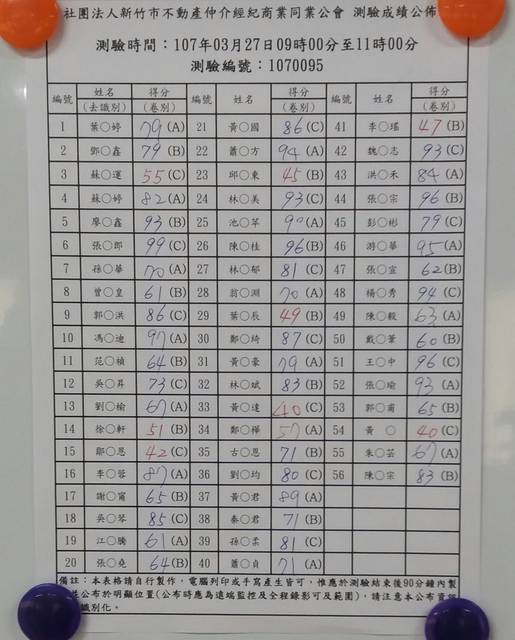 社團法人新竹市不動產仲介經紀商業同業公會 測驗成績公佈
測驗時間：107年03月27日09時00分至11時00分
測驗編號：1070095
編號 姓名(去識別) 得分(卷別) 編號 姓名 得分(卷別) 編號 姓名 得分(卷別)
1 葉○婷 79(A) 21 黃○國 86(C) 41 李○瑤 47(B)
2 鄧○鑫 79(B) 22 蕭○方 94(A) 42 魏○志 93(C)
3 蘇○運 55(C) 23 邱○東 45(B) 43 洪○禾 84(A)
4 蘇○婷 82(A) 24 林○美 93(C) 44 張○宗 96(B)
5 廖○鑫 93(B) 25 池○苹 90(A) 45 彭○彬 79(C)
6 張○郎 99(C) 26 陳○桂 96(B) 46 游○華 95(A)
7 孫○華 70(A) 27 林○郁 81(C) 47 張○宣 62(B)
8 曾○皇 61(B) 28 翁○淵 70(A) 48 楊○秀 94(C)
9 郭○洪 86(C) 29 葉○辰 49(B) 49 陳○毅 63(A)
10 馮○迪 97(A) 30 鄭○綺 87(C) 50 戴○筆 60(B)
11 范○楨 64(B) 31 黃○豪 79(A) 51 王○中 96(C)
12 吳○昇 73(C) 32 林○斌 83(B) 52 張○瑜 93(A)
13 劉○榆 67(A) 33 黃○達 40(C) 53 郭○甫 65(B)
14 徐○軒 51(B) 34 鄭○樺 57(A) 54 黃○ 40(C)
15 鄭○恩 42(C) 35 古○恩 71(B) 55 朱○芸 67(A)
16 李○蓉 87(A) 36 劉○均 80(C) 56 陳○宗 83(B)
17 謝○甯 65(B) 37 黃○君 89(A)
18 吳○琴 85(C) 38 秦○君 71(B)
19 江○騰 61(A) 39 孫○柔 81(C)
20 張○堯 64(B) 40 蕭○貞 71(A)
備註：本表格請自行製作，電腦列印或手寫產生皆可，惟應於測驗結束後90分鐘內製
並公布於明顯位置(公布時應為遠端監控及全程錄影可及範圍)，請注意本公布資訊
識別化。